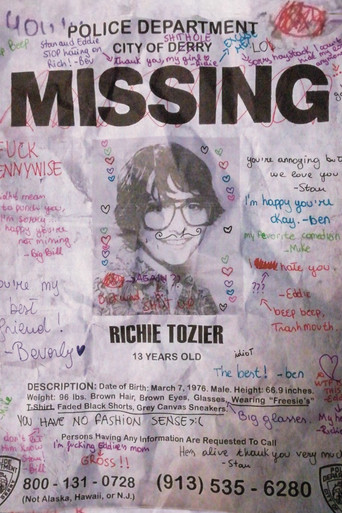 YOU!!
POLICE DEPARTMENT
SHITHOLE
CITY OF DERRY
Beep
Stan and Eddie
STOP hating on
Rich! -Bev
thank you, my girl
LOL
MISSING
FUCK
PENNYWISE
mean
to punch you,
I'm sorry
happy you're
not missing
- Big Bill
you're annoying but
we love you
-Stan
I'm happy you're
okay. -ben
my favorite comedian
- Mike
hate you.
???
-Eddie
beep beep,
Trashmouth.
you're my
best
friend!
-Beverly
RICHIE TOZIER
13 YEARS OLD
idiot
The best! -ben
DESCRIPTION: Date of Birth: March 7, 1976. Male. Height: 66.9 inches.
Weight: 96 lbs. Brown Hair, Brown Eyes, Glasses, Wearing "Freesie's"
T-Shirt, Faded Black Shorts, Grey Canvas Sneakers.
Big glasses.
YOU HAVE NO FASHION SENSE >:(
Persons Having Any Information Are Requested To Call
I'm fucking Eddie's mom
GROSS!!
Hes alive thank you very much
- Stan
800 - 131 - 0728
(913) 535 - 6280
(Not Alaska, Hawaii, or N.J.)